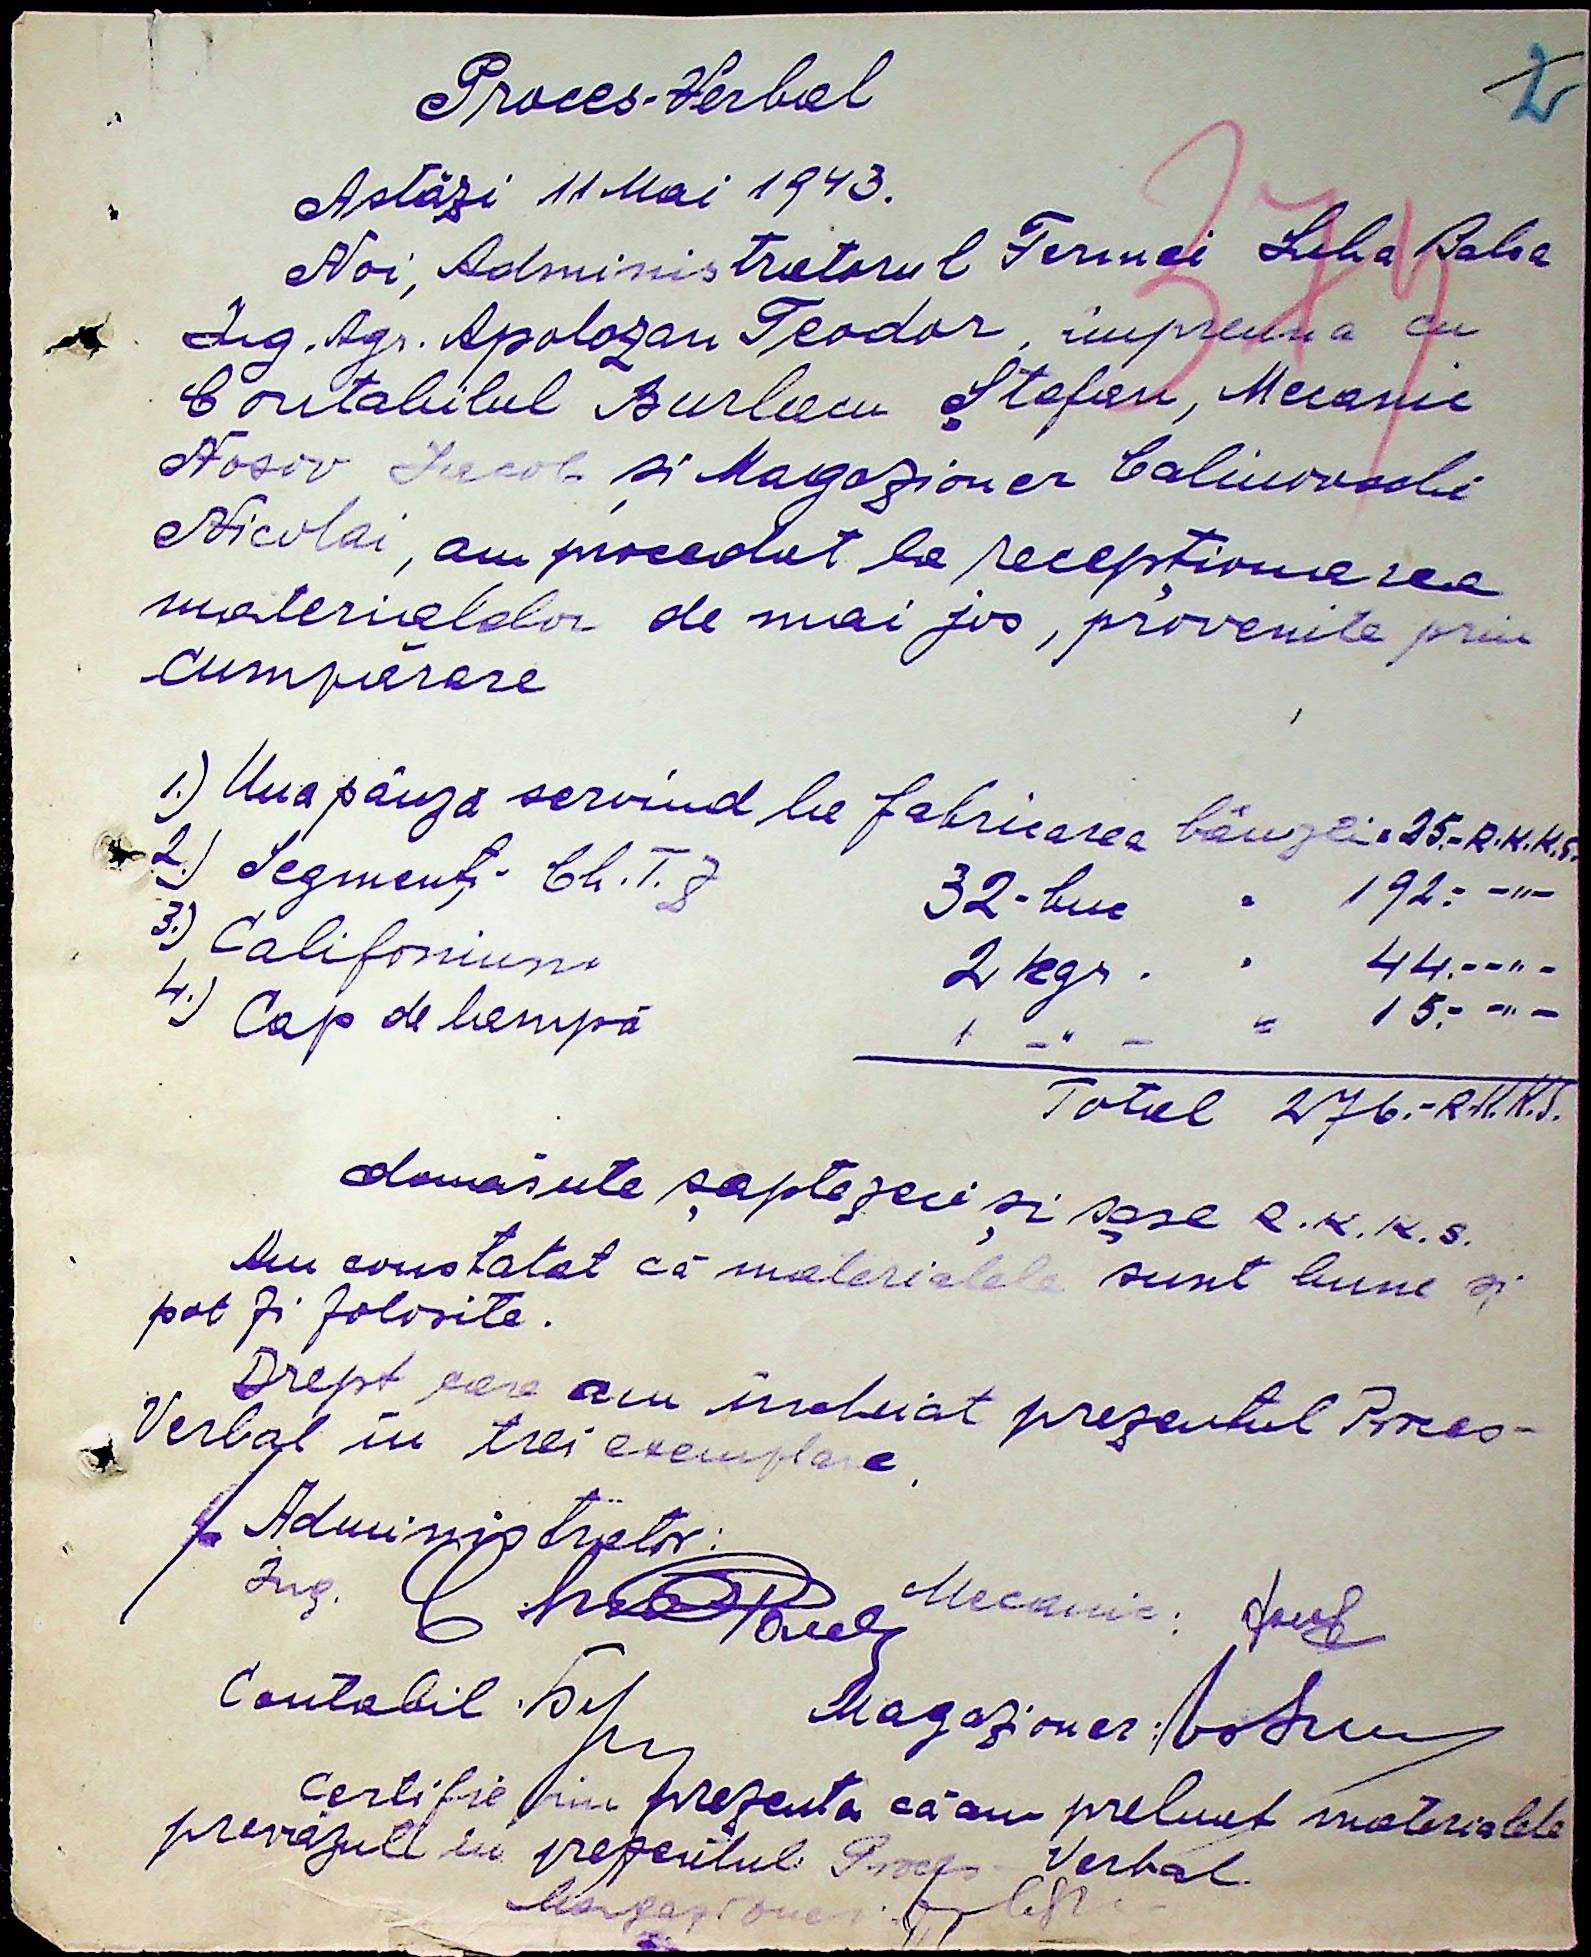 2
374
Proces-Verbal
Astăzi 11 Mai 1943.
Noi, Administratorul Fermei Luha Balca
Ing. Agr. Apolozan Teodor, impreuna cu
Contabilul Burlacu Ștefan, Mecanic
Nosov Iacob și Magazioner Calinovschi
Nicolai, am procedat la recepționarea
materialelor de mai jos, provenite prin
cumpărare
1.) Una pânză servind la fabricarea bânzei " 25.- R.K.K.S.
2.) Segmenți - Ch. T. Z 32 - buc " 192.- -"-
3.) Califonium 2 kgr. " 44.- -"-
4.) Cap de lampă 1 -"- " 15.- -"-
Total 276.- R.K.K.S.
douăsute șaptezeci și șase R.K.K.S.
Am constatat că materialele sunt bune și
pot fi folosite.
Drept care am incheiat prezentul Proces-
Verbal in trei exemplare.
p. Administrator:
Ing. Mecanic:
Contabil. Magazioner:
Certific prin prezenta că am preluat materialele
prevăzute in prezentul Proces-Verbal.
Magazioner: